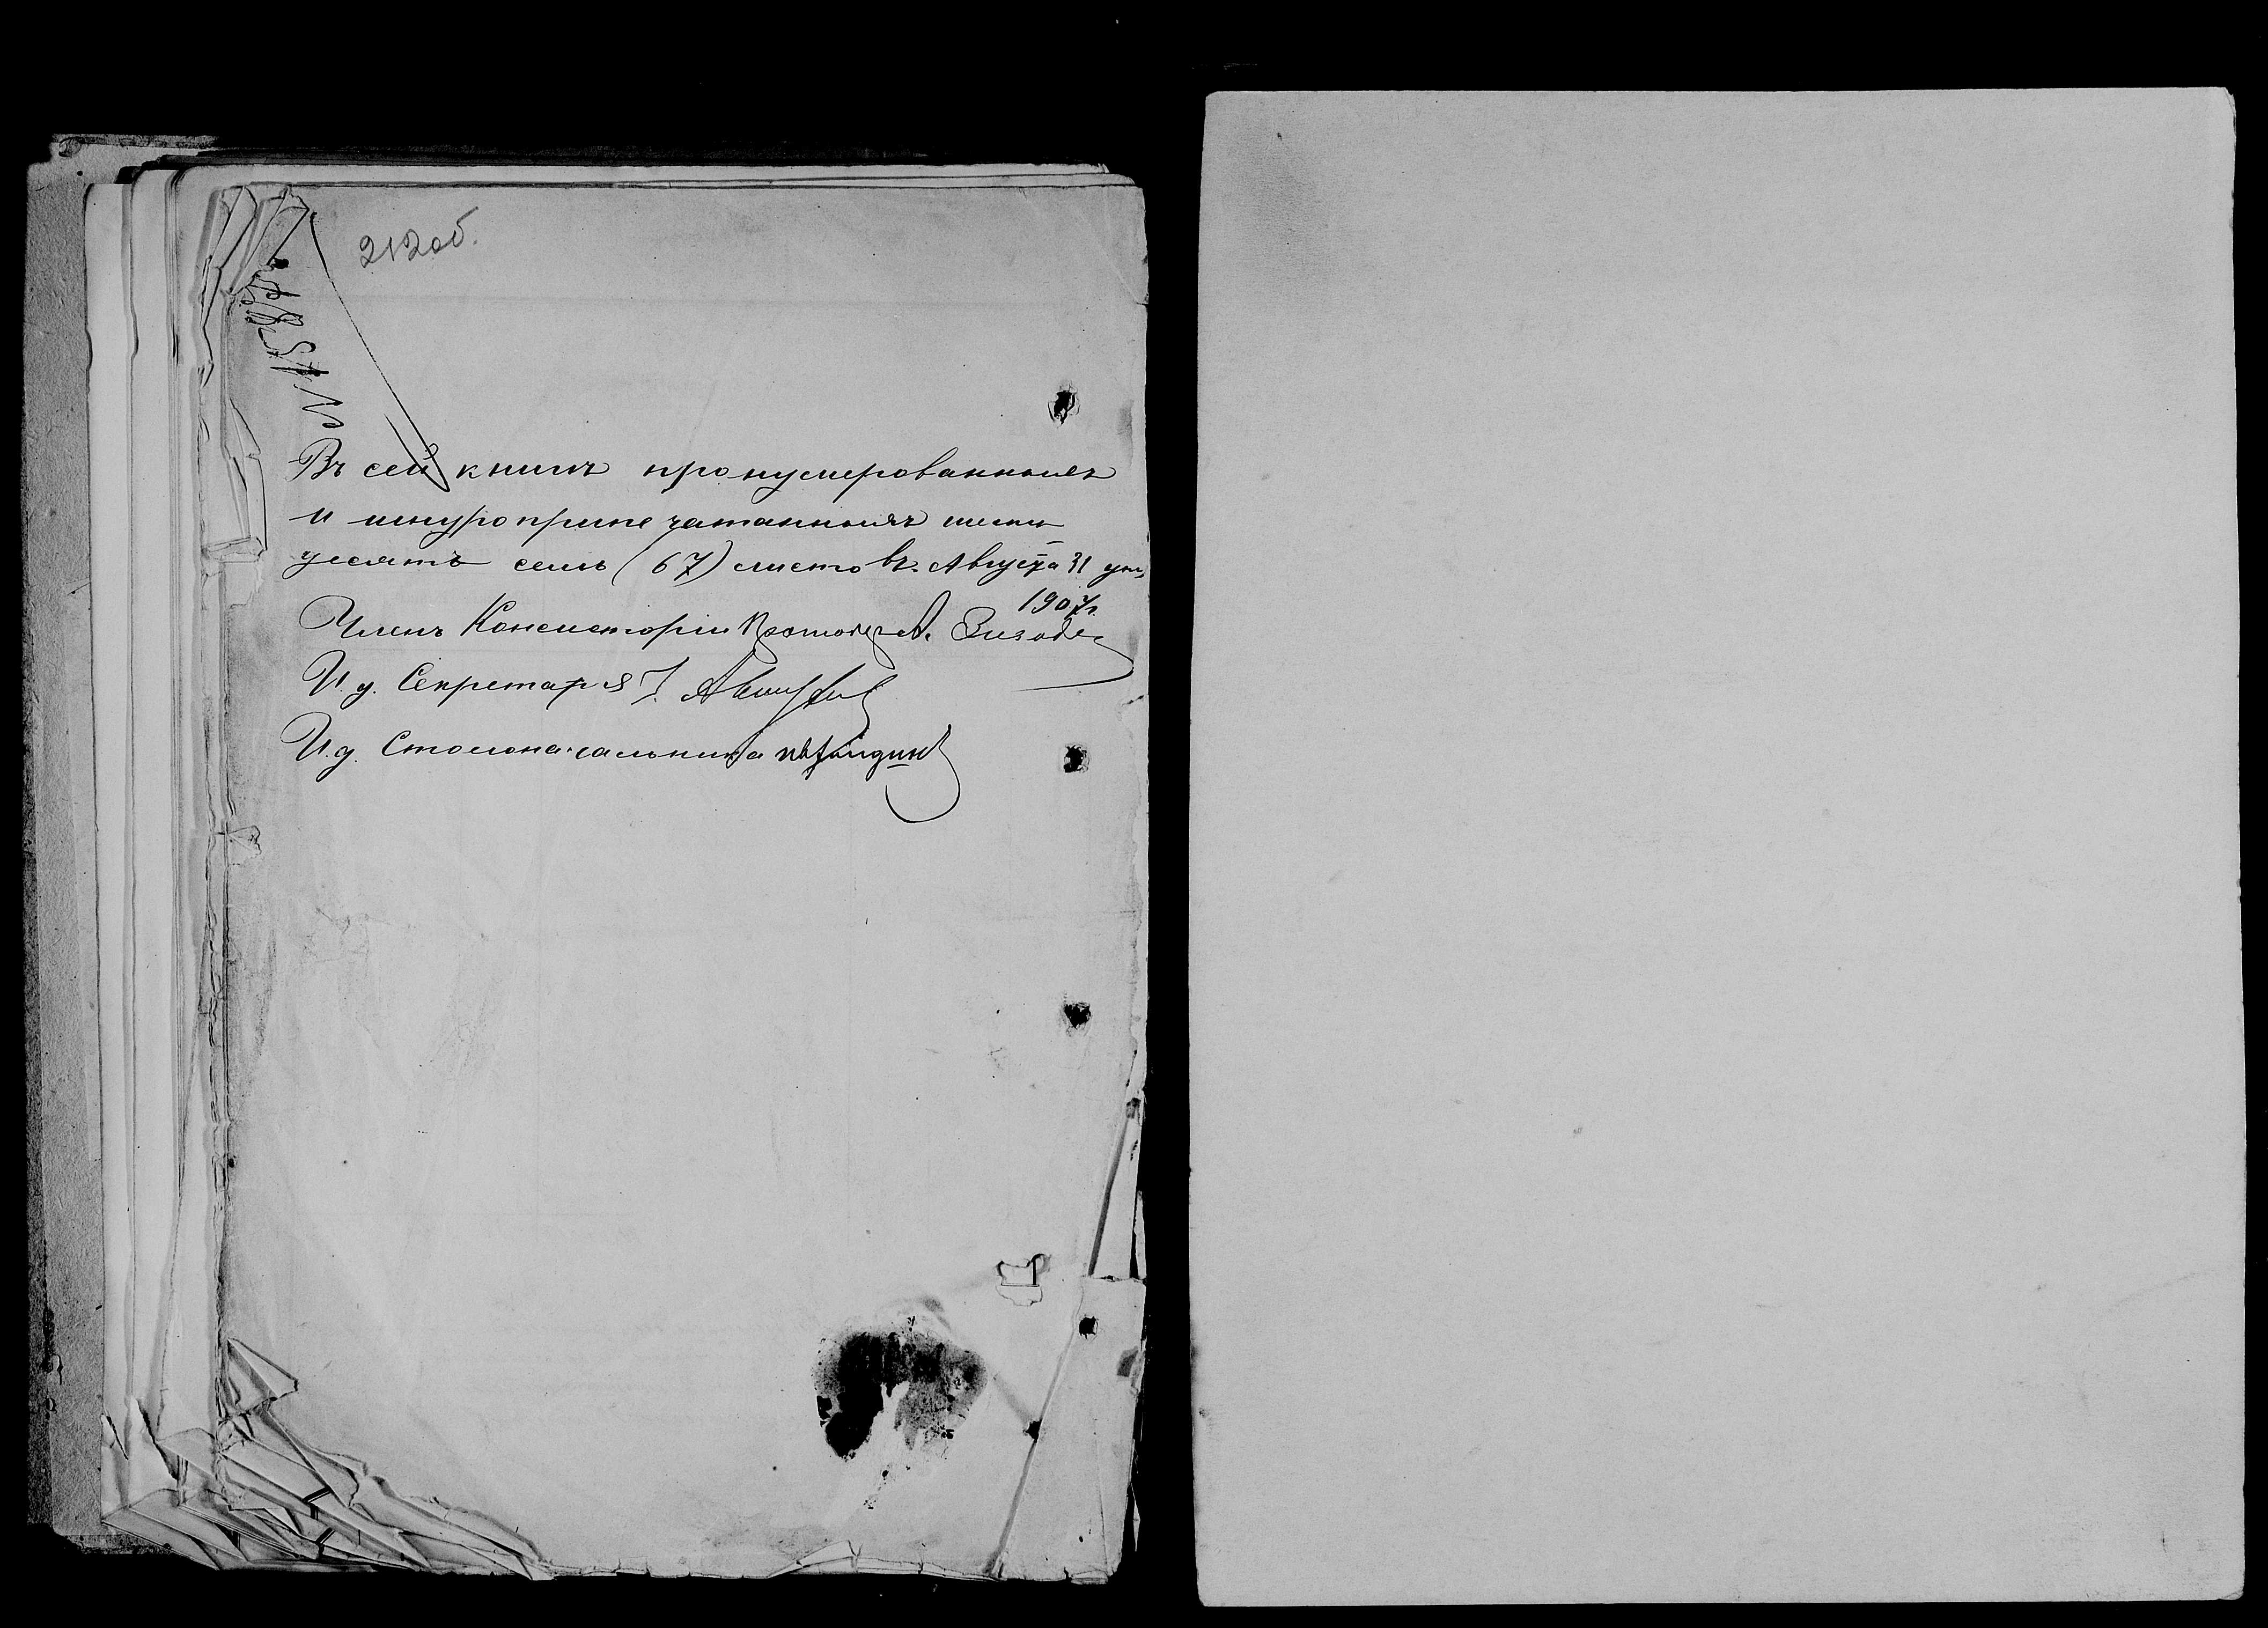 212 об.
Въ сей книгѣ пронумерованныхъ
и шнуроприпечатанныхъ шесть
десятъ семь (67) листовъ. Августа 31 дня
1907 г.
Членъ Консисторіи Протоіер. А.
И. д. Секретаря
И. д. Столоначальника